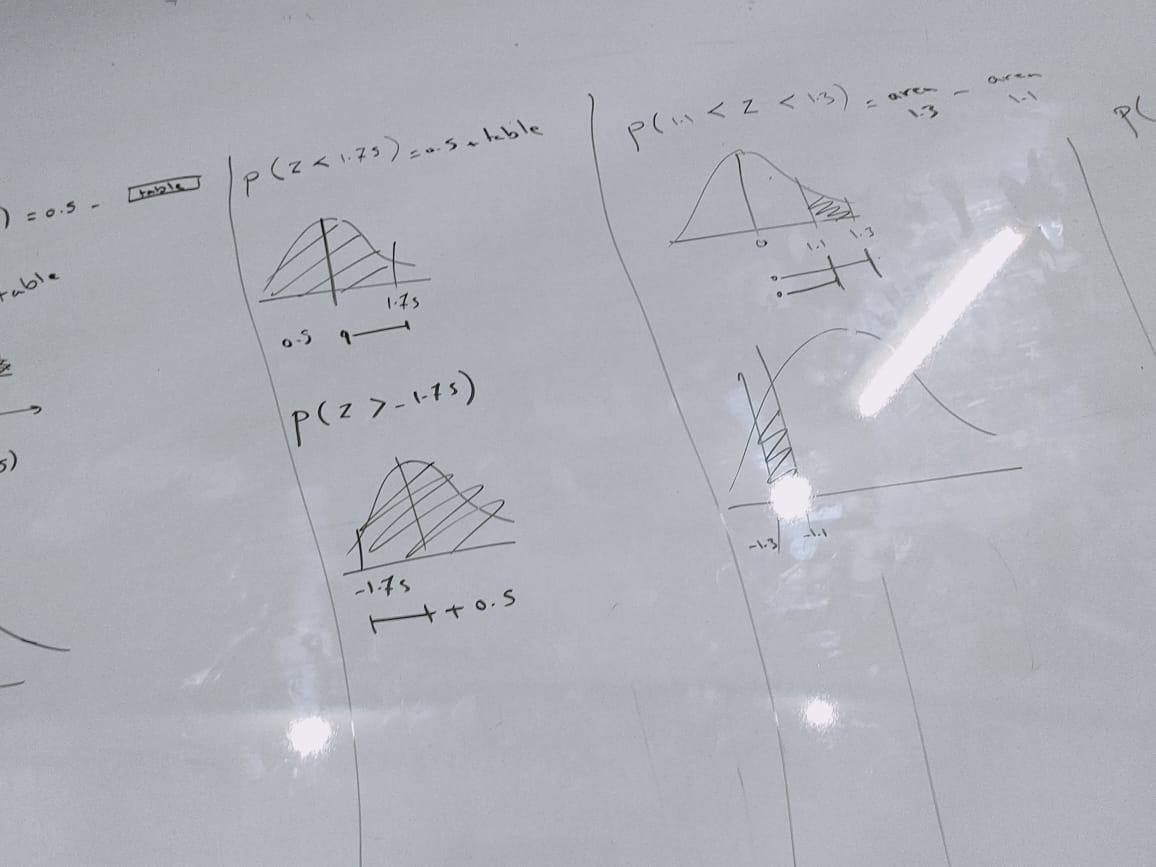 ) = 0.5 - table
table
s)
P(Z < 1.75) = 0.5 + table
1.75
0.5
P(Z > -1.75)
-1.75
+ 0.5
P(1.1 < Z < 1.3) = area 1.3 - area 1.1
0 1.1 1.3
-1.3 -1.1
P(